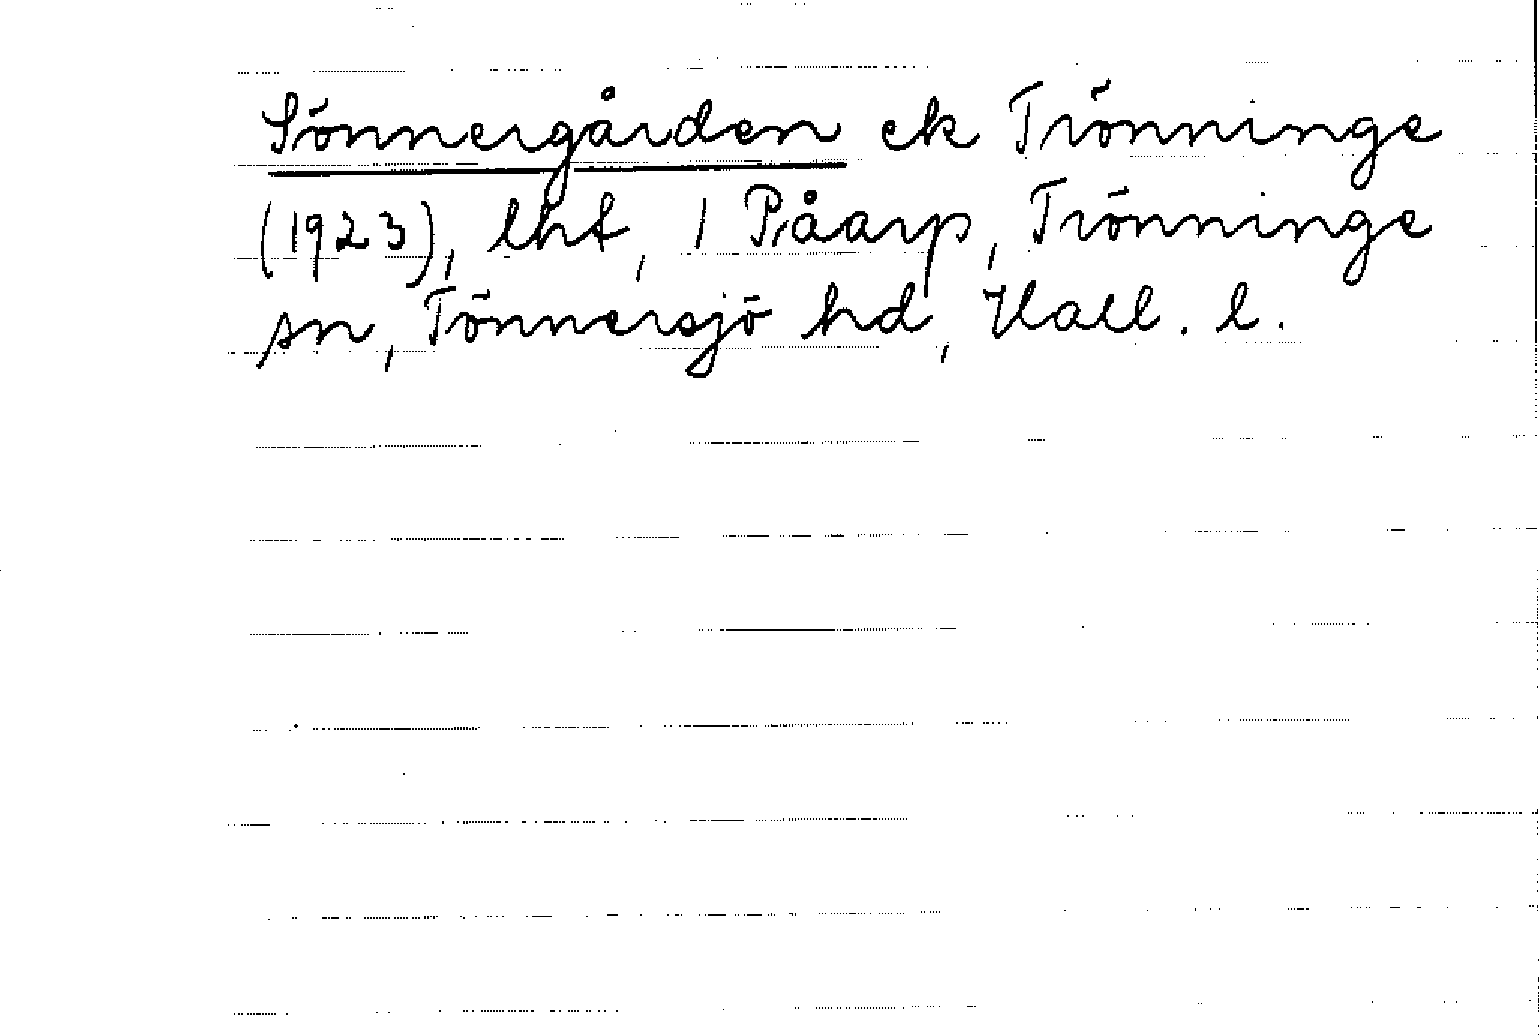 Sönnergården ek Trönninge
(1923), lht, 1 Påarp, Trönninge
sn, Tönnersjö hd, Hall. l.